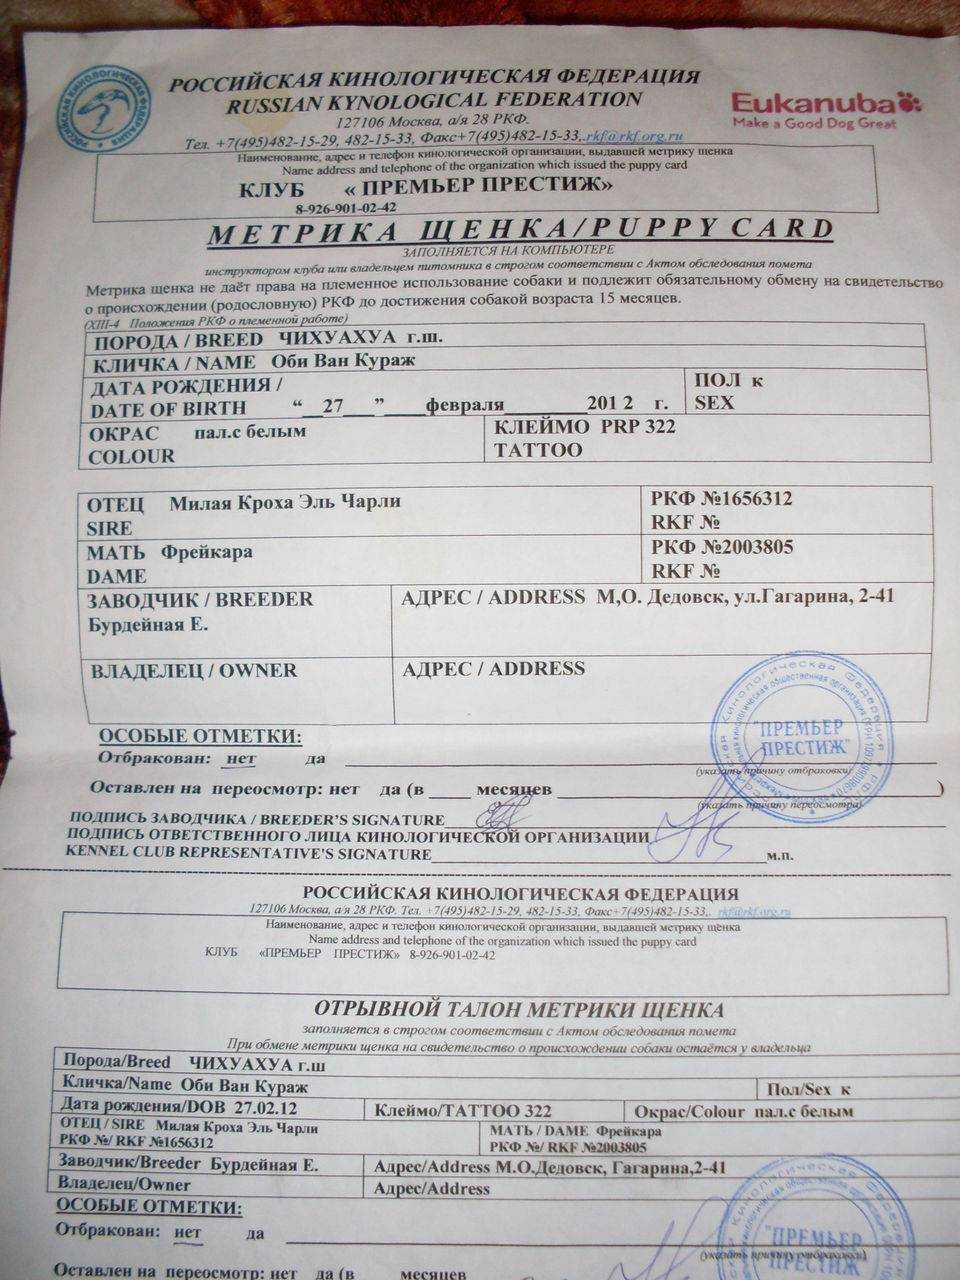 РОССИЙСКАЯ КИНОЛОГИЧЕСКАЯ ФЕДЕРАЦИЯ
RUSSIAN KYNOLOGICAL FEDERATION
Eukanuba
Make a Good Dog Great
127106 Москва, а/я 28 РКФ.
Тел. +7(495)482-15-29, 482-15-33, Факс+7(495)482-15-33,.rkf@rkf.org.ru
Наименование, адрес и телефон кинологической организации, выдавшей метрику щенка
Name address and telephone of the organization which issued the puppy card
КЛУБ « ПРЕМЬЕР ПРЕСТИЖ»
8-926-901-02-42
МЕТРИКА ЩЕНКА/PUPPY CARD
ЗАПОЛНЯЕТСЯ НА КОМПЬЮТЕРЕ
инструктором клуба или владельцем питомника в строгом соответствии с Актом обследования помета
Метрика щенка не даёт права на племенное использование собаки и подлежит обязательному обмену на свидетельство
о происхождении (родословную) РКФ до достижения собакой возраста 15 месяцев.
(XIII-4 Положения РКФ о племенной работе)
ПОРОДА / BREED ЧИХУАХУА г.ш.
КЛИЧКА / NAME Оби Ван Кураж
ДАТА РОЖДЕНИЯ /
DATE OF BIRTH “__27___”____февраля________2012 г.
ПОЛ к
SEX
ОКРАС пал.с белым
COLOUR
КЛЕЙМО PRP 322
TATTOO
ОТЕЦ Милая Кроха Эль Чарли
SIRE
РКФ №1656312
RKF №
МАТЬ Фрейкара
DAME
РКФ №2003805
RKF №
ЗАВОДЧИК / BREEDER
Бурдейная Е.
АДРЕС / ADDRESS М,О. Дедовск, ул.Гагарина, 2-41
ВЛАДЕЛЕЦ / OWNER
АДРЕС / ADDRESS
"ПРЕМЬЕР
ПРЕСТИЖ"
ОСОБЫЕ ОТМЕТКИ:
Отбракован: нет да
(указать причину отбраковки)
Оставлен на пересмотр: нет да (в ____ месяцев )
(указать причину пересмотра)
ПОДПИСЬ ЗАВОДЧИКА / BREEDER'S SIGNATURE
ПОДПИСЬ ОТВЕТСТВЕННОГО ЛИЦА КИНОЛОГИЧЕСКОЙ ОРГАНИЗАЦИИ
KENNEL CLUB REPRESENTATIVE'S SIGNATURE м.п.
РОССИЙСКАЯ КИНОЛОГИЧЕСКАЯ ФЕДЕРАЦИЯ
127106 Москва, а/я 28 РКФ. Тел. +7(495)482-15-29, 482-15-33, Факс+7(495)482-15-33,. rkf@rkf.org.ru
Наименование, адрес и телефон кинологической организации, выдавшей метрику щенка
Name address and telephone of the organization which issued the puppy card
КЛУБ «ПРЕМЬЕР ПРЕСТИЖ» 8-926-901-02-42
ОТРЫВНОЙ ТАЛОН МЕТРИКИ ЩЕНКА
заполняется в строгом соответствии с Актом обследования помета
При обмене метрики щенка на свидетельство о происхождении собаки остаётся у владельца
Порода/Breed ЧИХУАХУА г.ш
Кличка/Name Оби Ван Кураж
Пол/Sex к
Дата рождения/DOB 27.02.12
Клеймо/TATTOO 322
Окрас/Colour пал.с белым
ОТЕЦ / SIRE Милая Кроха Эль Чарли
РКФ №/ RKF №1656312
МАТЬ / DAME Фрейкара
РКФ №/ RKF №2003805
Заводчик/Breeder Бурдейная Е.
Адрес/Address М.О.Дедовск, Гагарина,2-41
Владелец/Owner
Адрес/Address
ОСОБЫЕ ОТМЕТКИ:
Отбракован: нет да
"ПРЕМЬЕР
ПРЕСТИЖ"
(указать причину отбраковки)
Оставлен на пересмотр: нет да (в месяцев